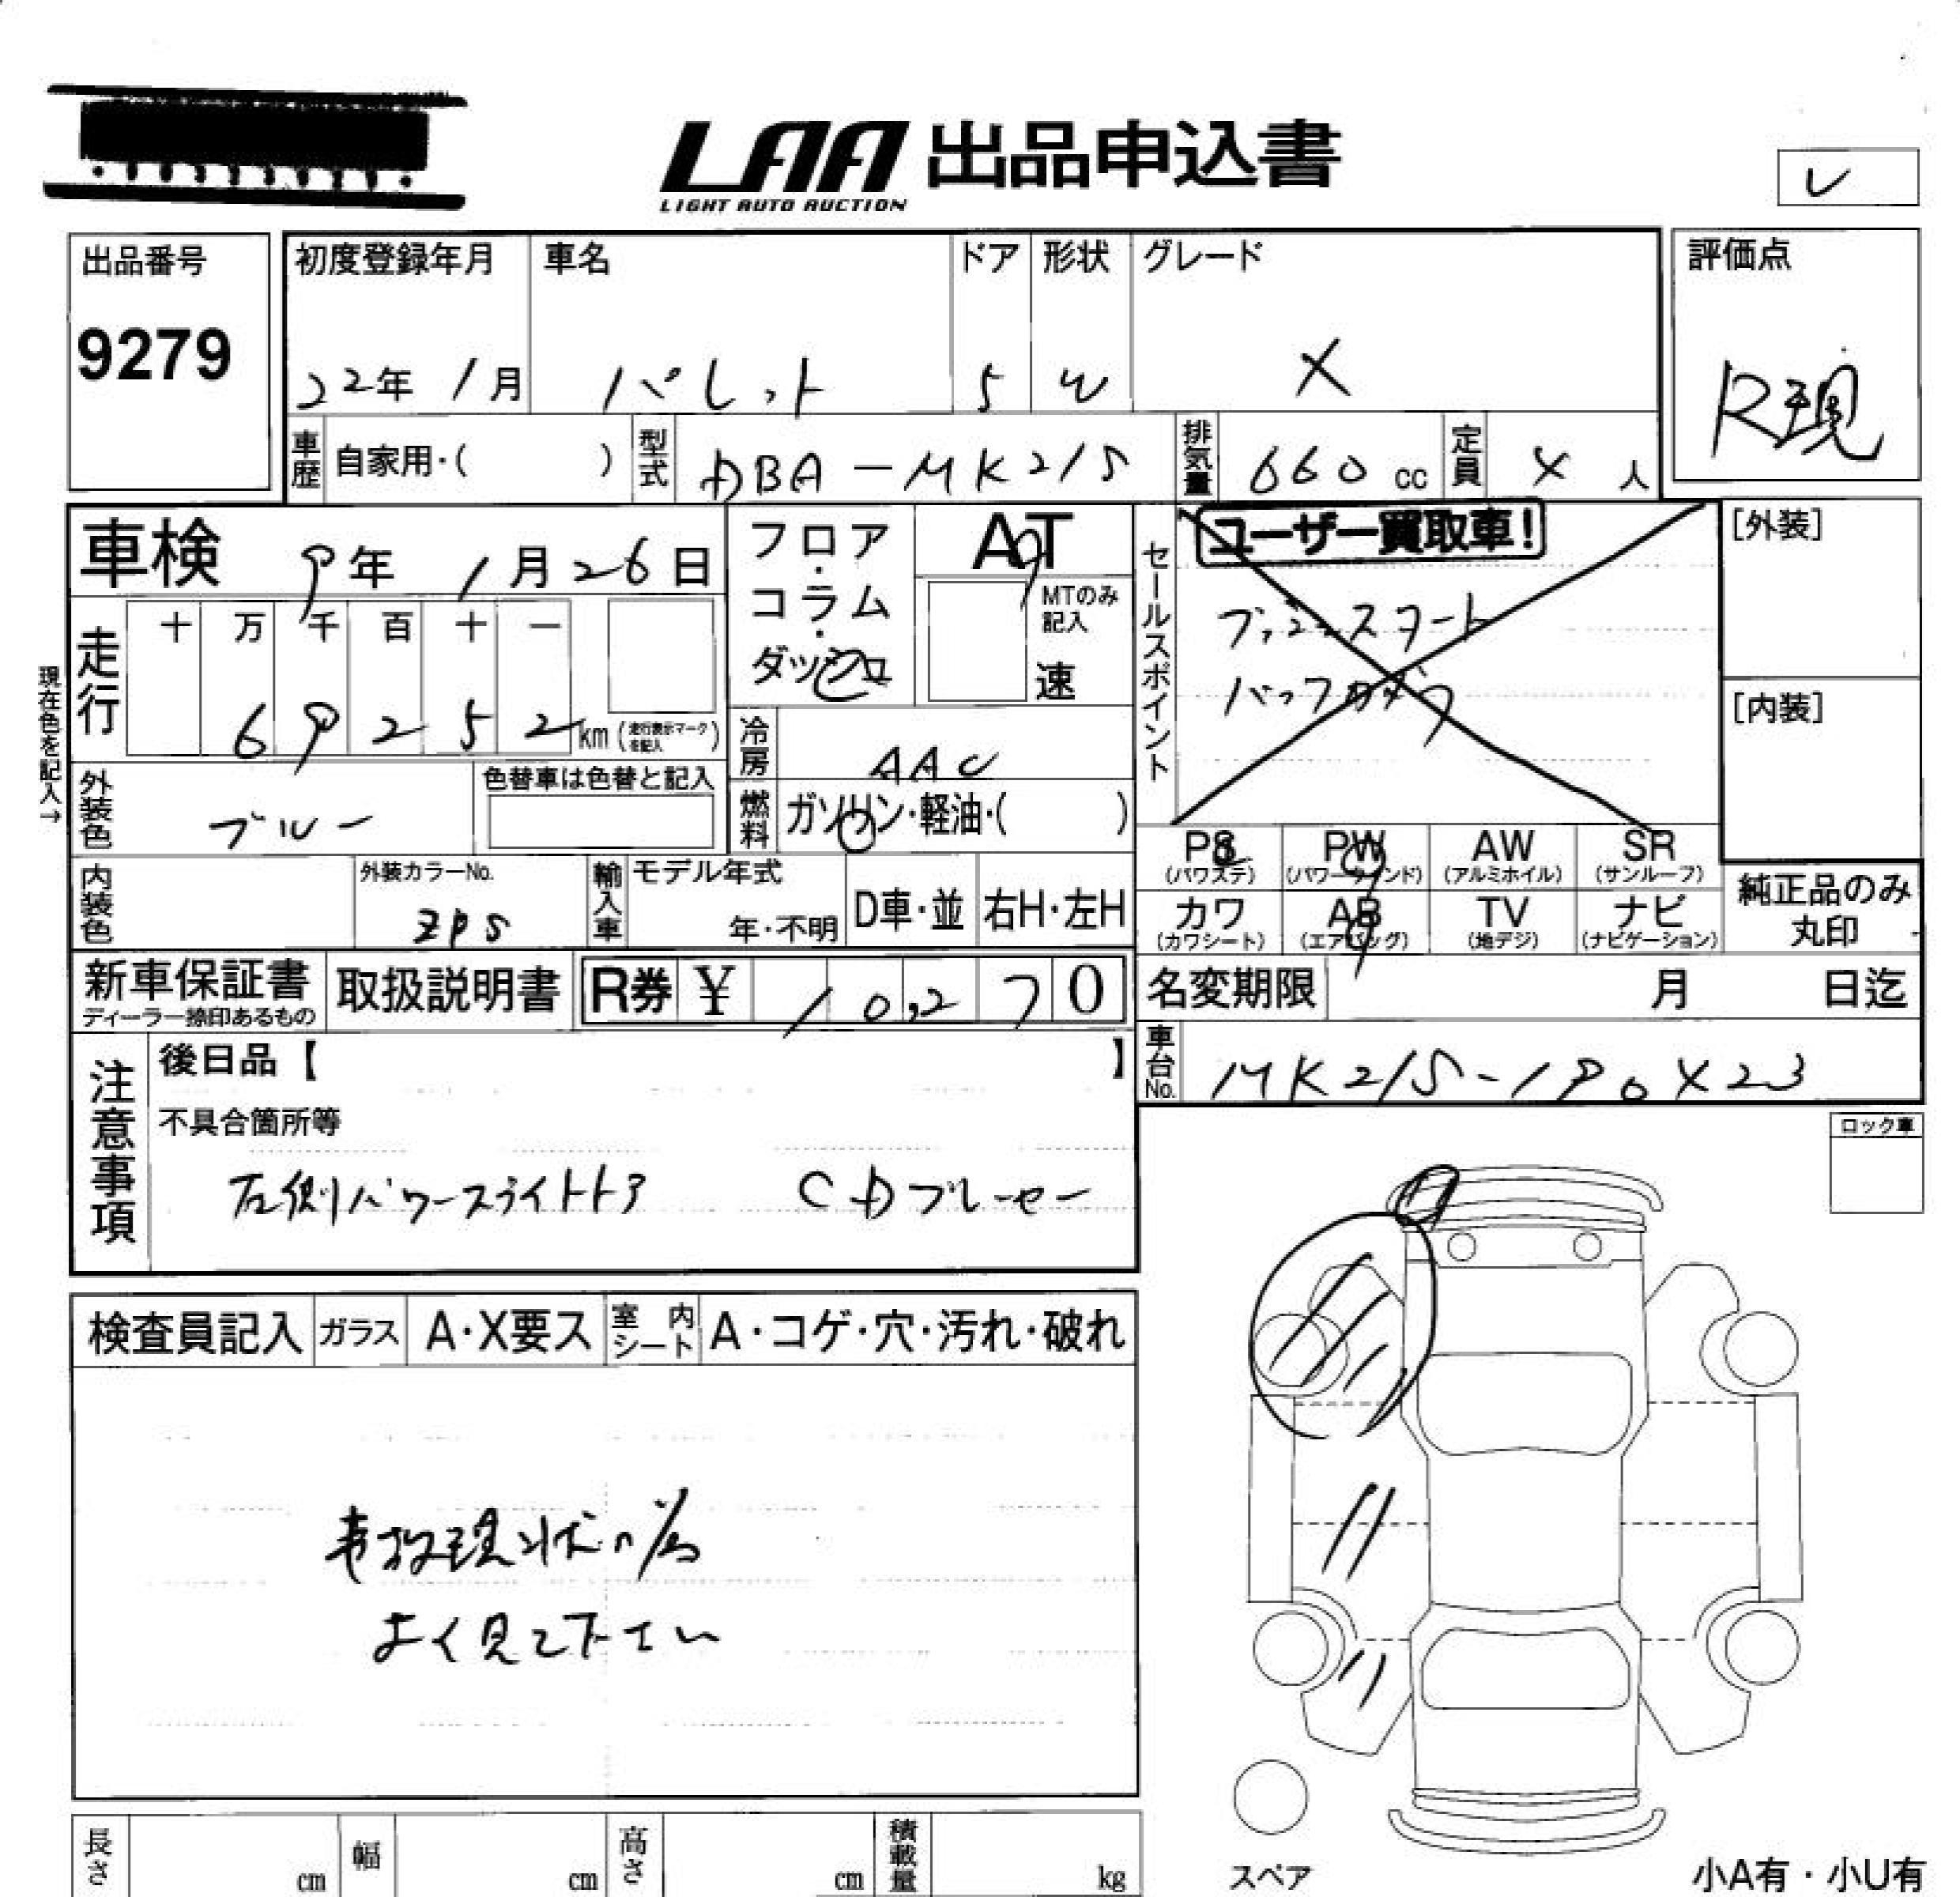 LAA 出品申込書
LIGHT AUTO AUCTION
レ
出品番号
9279
初度登録年月
22年 1月
車名
パレット
ドア
5
形状
W
グレード
X
評価点
R現
車歴
自家用・( )
型式
DBA-MK21S
排気量
660 cc
定員
4 人
車検
9年 1月 26日
走行
十 万 千 百 十 一
6 9 2 5 2 km (走行表示マークを記入)
現在色を記入→
外装色
ブルー
色替車は色替と記入
内装色
外装カラーNo.
ZPS
フロア・コラム・ダッシュ
AT
MTのみ記入
速
冷房
AAC
燃料
ガソリン・軽油・( )
輸入車
モデル年式
年・不明
D車・並
右H・左H
セールスポイント
ユーザー買取車!
プッシュスタート
バックカメラ
[外装]
[内装]
PS (パワステ)
PW (パワーウィンド)
AW (アルミホイル)
SR (サンルーフ)
カワ (カワシート)
AB (エアバッグ)
TV (地デジ)
ナビ (ナビゲーション)
純正品のみ丸印
新車保証書
ディーラー捺印あるもの
取扱説明書
R券 ¥ 10,270
名変期限 月 日迄
車台No.
MK21S-190423
注意事項
後日品【 】
不具合箇所等
左側パワースライドドア CDプレーヤー
ロック車
検査員記入
ガラス
A・X要ス
室内シート
A・コゲ・穴・汚れ・破れ
事故現状の為
よく見て下さい
長さ cm
幅 cm
高さ cm
積載量 kg
スペア
小A有・小U有